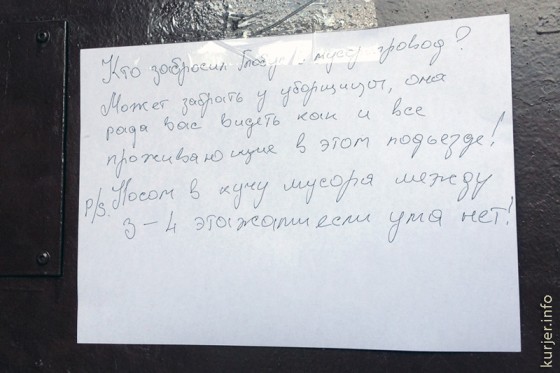 Кто забросил провод?
Может забрать у уборщицы, она
рада вас видеть как и все
проживающие в этом подьезде!
P/s. Носом в кучу мусора между
3-4 этажами если ума нет!
kurjer.info